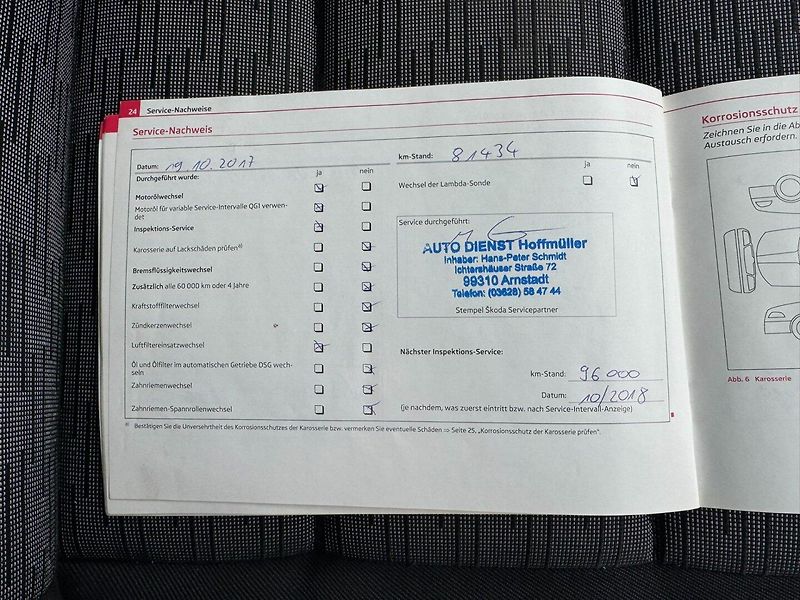 24 Service-Nachweise
Service-Nachweis
Datum: 19.10.2017
km-Stand: 81434
Durchgeführt wurde:
ja nein
ja nein
Motorölwechsel
Wechsel der Lambda-Sonde
Motoröl für variable Service-Intervalle QG1 verwen-
det
Inspektions-Service
Karosserie auf Lackschäden prüfen a)
Bremsflüssigkeitswechsel
Zusätzlich alle 60 000 km oder 4 Jahre
Kraftstofffilterwechsel
Zündkerzenwechsel
Luftfiltereinsatzwechsel
Öl und Ölfilter im automatischen Getriebe DSG wech-
seln
Zahnriemenwechsel
Zahnriemen-Spannrollenwechsel
Service durchgeführt:
AUTO DIENST Hoffmüller
Inhaber: Hans-Peter Schmidt
Ichtershäuser Straße 72
99310 Arnstadt
Telefon: (03628) 58 47 44
Stempel Škoda Servicepartner
Nächster Inspektions-Service:
km-Stand: 96 000
Datum: 10/2018
(je nachdem, was zuerst eintritt bzw. nach Service-Intervall-Anzeige)
a) Bestätigen Sie die Unversehrtheit des Korrosionsschutzes der Karosserie bzw. vermerken Sie eventuelle Schäden ⇒ Seite 25, „Korrosionsschutz der Karosserie prüfen".
Korrosionsschutz
Zeichnen Sie in die Ab
Austausch erfordern.
Abb. 6 Karosserie